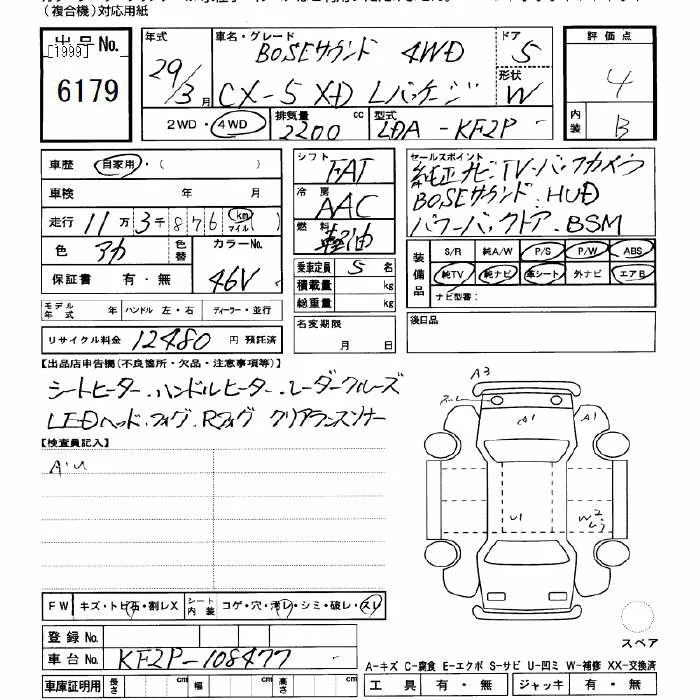 (複合機)対応用紙
出品No.
[1999]
6179
年式
29/3月
車名・グレード
BOSEサウンド 4WD
CX-5 XD Lパッケージ
ドア
5
形状
W
評価点
4
内装
B
2WD・4WD
排気量
2200 cc
型式
LDA-KF2P
車歴 自家用・( )
車検 年 月
走行 11万3千876 km マイル ( )
色 アカ
色替
カラーNo.
46V
保証書 有・無
モデル年式 年 ハンドル 左・右 ディーラー・並行
リサイクル料金 12480 円 預託済
シフト
FAT
冷房
AAC
燃料
軽油
乗車定員 5 名
積載量 kg
総重量 kg
名変期限
月 日
セールスポイント
純正ナビ・TV・バックカメラ
BOSEサウンド・HUD
パワーバックドア・BSM
装備品
S/R 純A/W P/S P/W ABS
純TV 純ナビ 革シート 外ナビ エアB
ナビ型番:
後日品
【出品店申告欄(不良箇所・欠品・注意事項等)】
シートヒーター・ハンドルヒーター・レーダークルーズ
LEDヘッド・フォグ・Rフォグ クリアランスソナー
【検査員記入】
A・U
A3
A1
A1
U1
W2
FW キズ・トビ石・割レX
シート内装 コゲ・穴・汚レ・シミ・破レ・スレ
登録No.
車台No. KF2P-108477
車庫証明用 長さ cm 幅 cm 高さ cm
スペア
A-キズ C-腐食 E-エクボ S-サビ U-凹ミ W-補修 XX-交換済
工具 有・無 ジャッキ 有・無